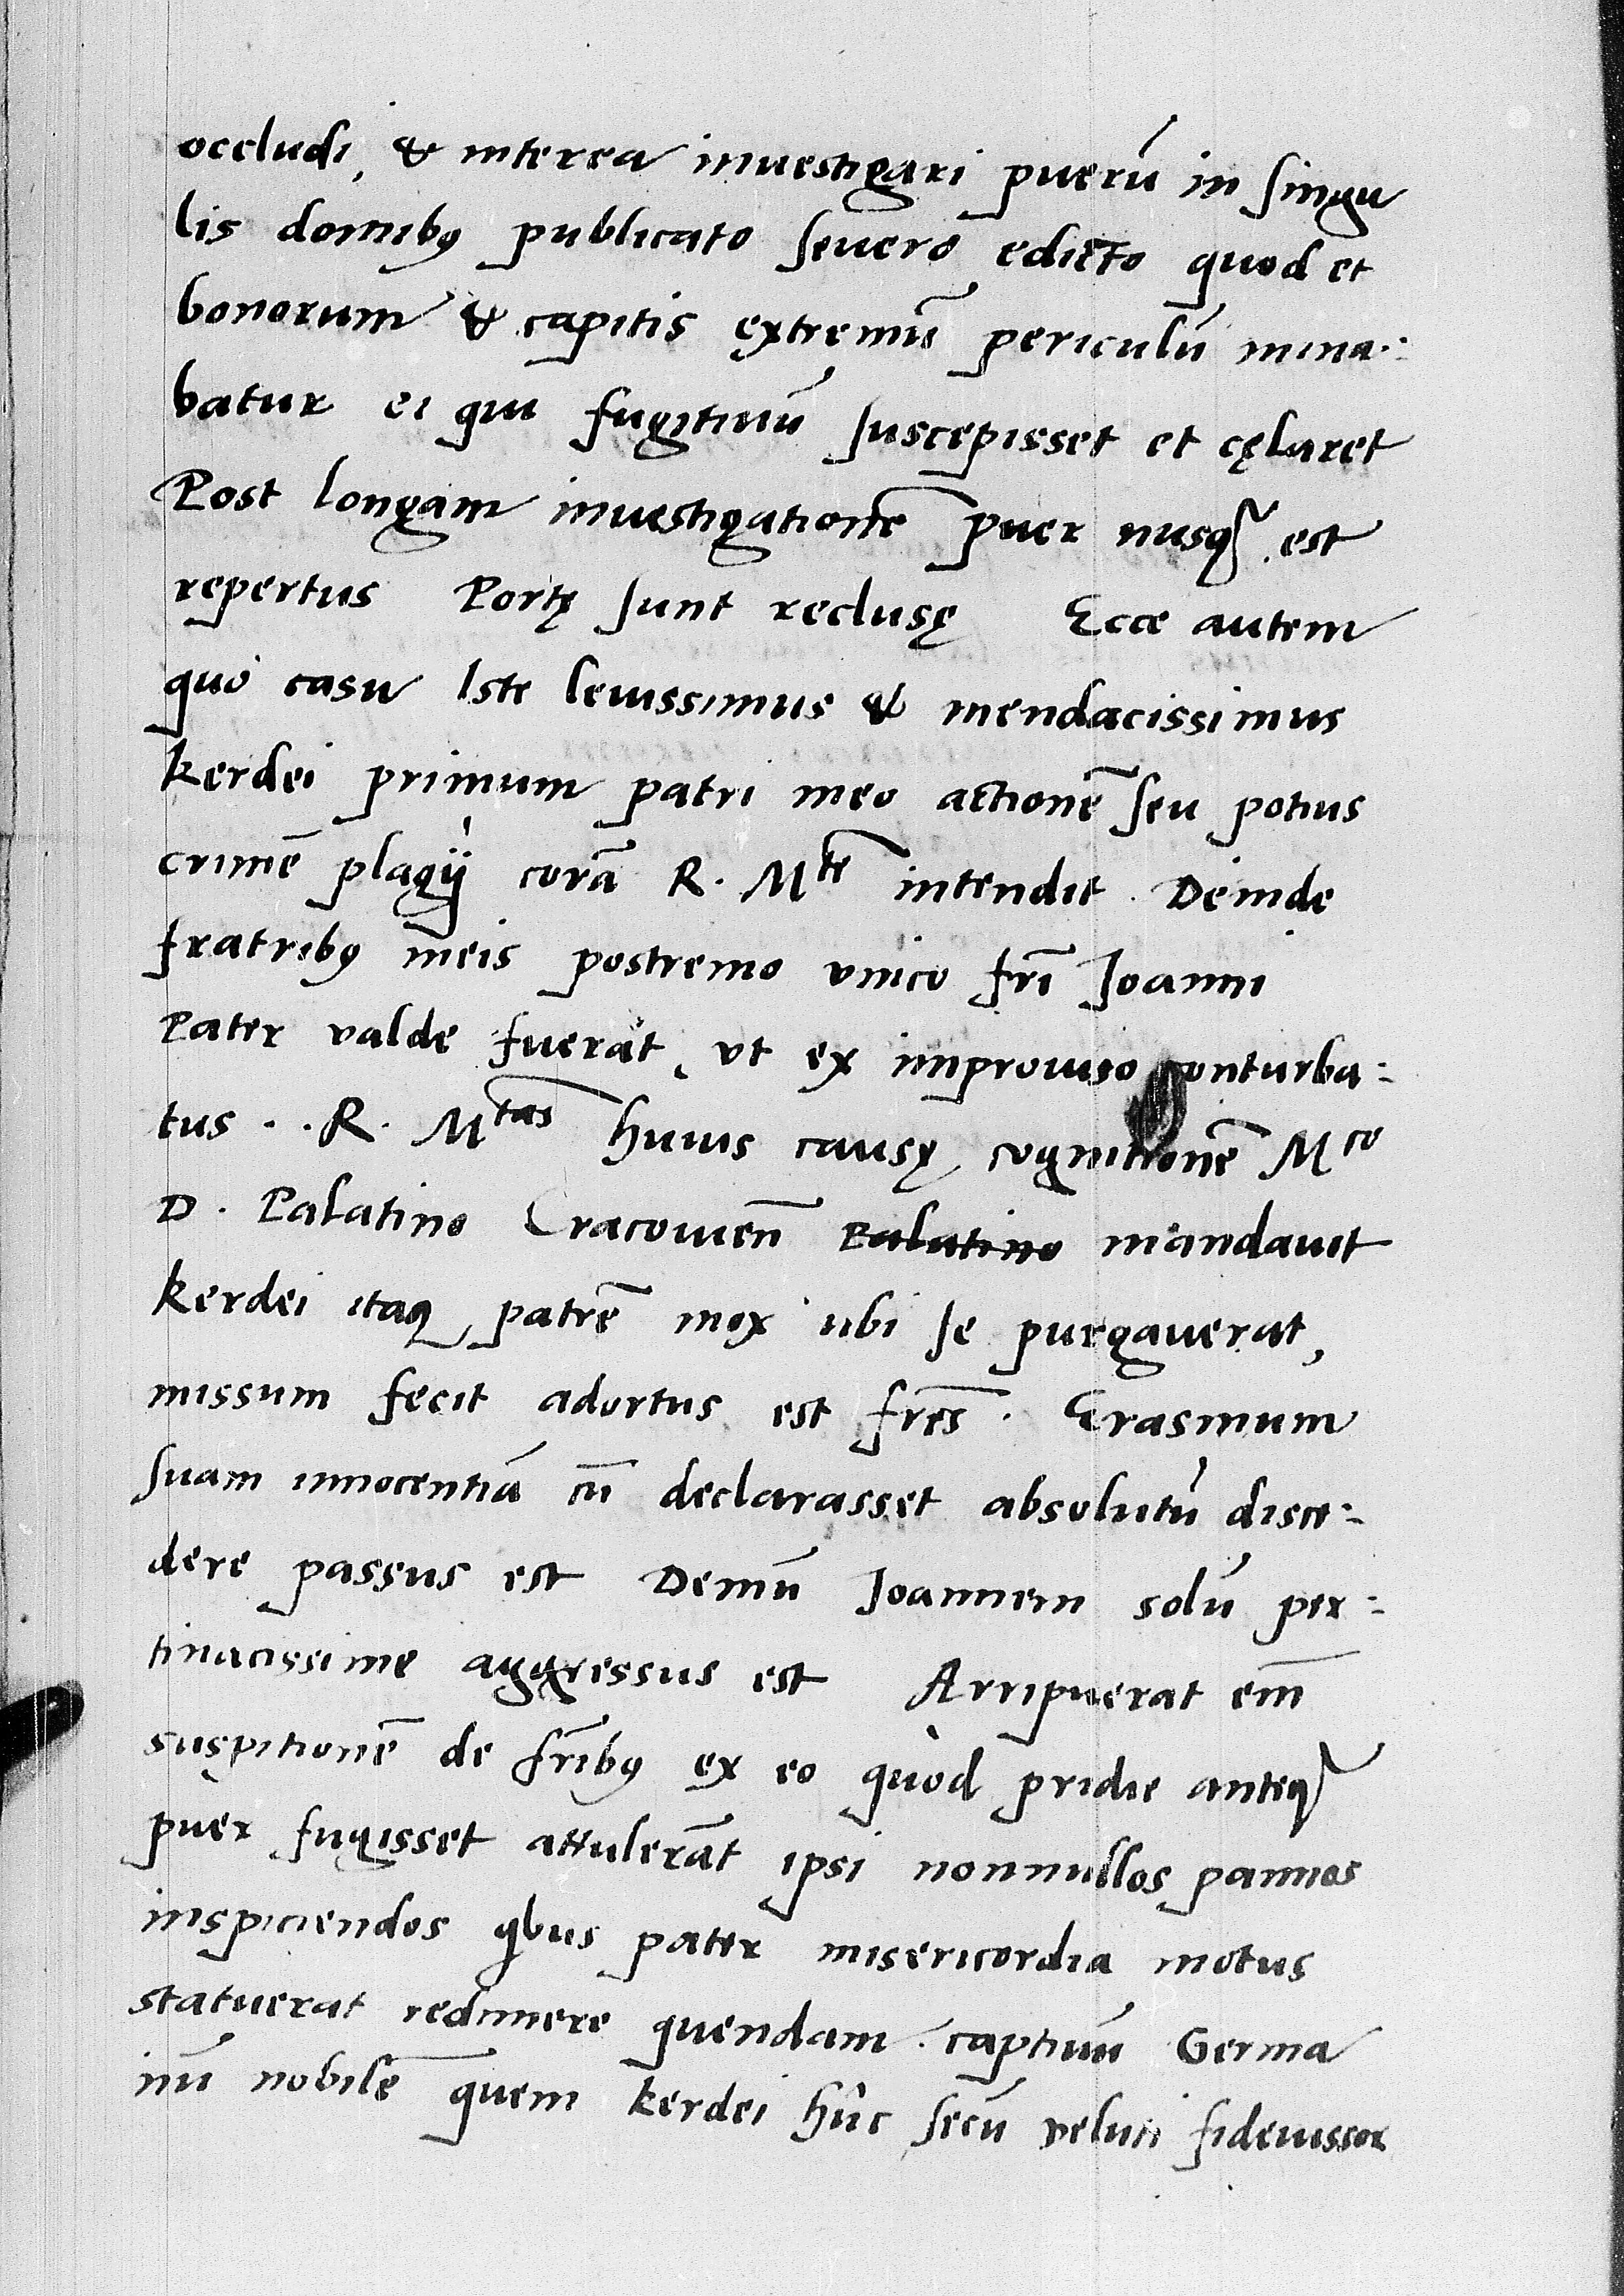 occludi, & interea inuestigari puerū in singu
lis domibꝰ publicato seuero edicto quod et
bonorum & capitis extremū periculū mina:
batur ei qui fugitiuū suscepisset et cęlaret
Post longam inuestigationē puer nusqȝ est
repertus Portę sunt reclusę Ecce autem
quo casu Iste leuissimus & mendacissimus
kerdei primum patri meo actionē seu potius
crimē plagij corā R. Mte intendit. Deinde
fratribꝰ meis postremo vnico frī Joanni
Pater valde fuerat, vt ex improuiso conturba:
tus.. R. Mtas huius causę cognitionē Mco
D. Palatino Cracouieñ Palatino mandauit
kerdei itaqȝ patrē mox ubi se purgauerat,
missum fecit adortus est frēs. Erasmum
suam innocentiā cū declarasset absolutū disce:
dere passus est Demū Joannem solū per:
tinacissime aggressus est Arripuerat eīm
suspitionē de frībꝰ ex eo quòd pridie anteqȝ
puer fugisset attulerāt ipsi nonnullos pannos
inspiciendos qbus pater misericordia motus
statuerat redimere quendam captiuū Germa
nū nobilē quem kerdei hûc secū veluti fideiussor